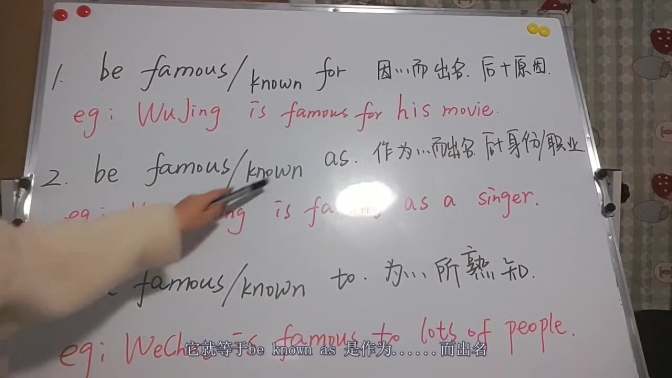 1. be famous/known for 因...而出名. 后+原因.
eg: WuJing is famous for his movie.
2. be famous/known as. 作为...而出名 后+身份/职业
is as a singer.
famous/known to. 为...所熟知.
eg: is famous to lots of people.
它就等于be known as 是作为......而出名